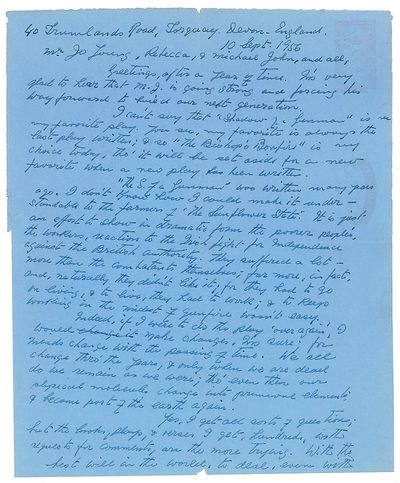 40 Trumlands Road, Torquay. Devon. England.
10 Sept 1956
Mr Jo Young, Rebecca, & Michael John, and all,
Greetings, after a year of time. I'm very
glad to hear that M.J. is going strong and forcing his
way forward to build our next generation.
I can't say that "Shadow of a Gunman" is
my favorite play. You see, my favorite is always the
last play written; & so "The Bishop's Bonfire" is my
choice today, tho' it will be set aside for a new
favorite when a new play has been written.
"The S. of a Gunman" was written many years
ago. I don't know how I could make it under-
standable to the farmers of 'The Sunflower State'. It is just
an effort to show in dramatic form the poorer people's,
the workers, reaction to the Irish fight for Independence
against the British authority. They suffered a lot –
more than the combatants themselves; far more, in fact;
and, naturally, they didn't like it, for they had to go
on living, & to live, they had to work; & to keep
working in the midst of gunfire wasn't easy.
Indeed, if I were to do the play over again, I
would change it make changes, I'm sure; for
minds change with the passing of time. We all
change thro' the years, & only when we are dead
do we remain as we were; tho' even then our
physical molecules change into elements
& become part of the earth again.
Yes, I get all sorts of question;
but the books, plays, & verses I get, hundreds, with
requests for comments, are the more trying. With the
best will in the world, to deal, even with